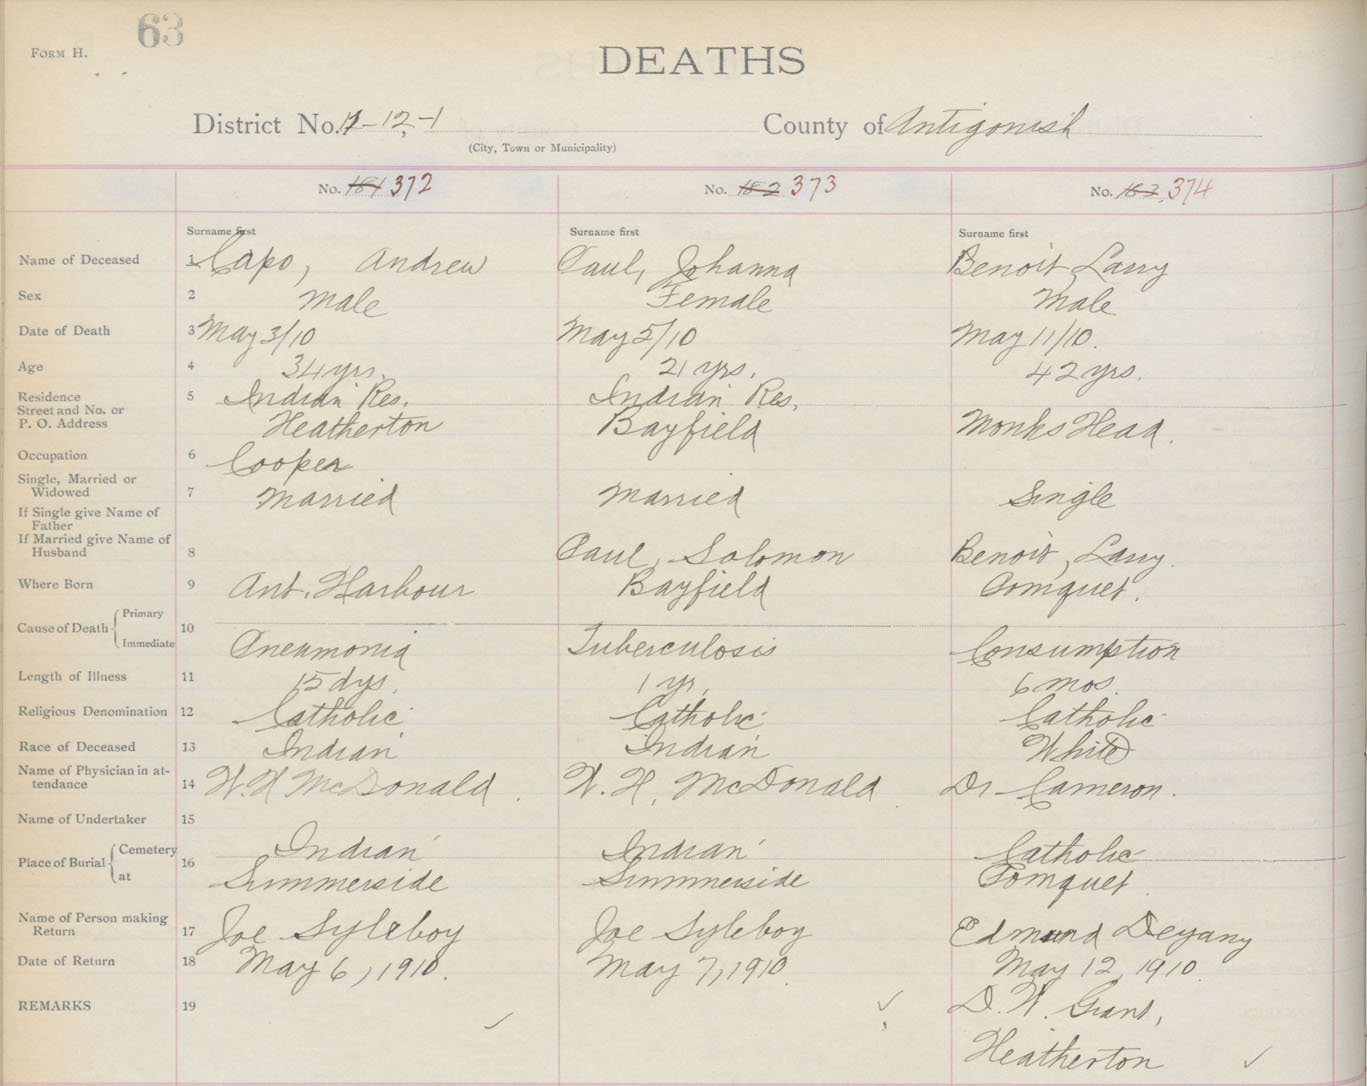 63
FORM H.
DEATHS
District No. 11-12-1 County of Antigonish
(City, Town or Municipality)
No. 181 372 No. 182 373 No. 183 374
Surname first Surname first Surname first
Name of Deceased 1 Capo, Andrew Paul, Johanna Benoit, Larry
Sex 2 Male Female Male
Date of Death 3 May 3/10 May 5/10 May 11/10.
Age 4 34 yrs. 21 yrs. 42 yrs.
Residence 5 Indian Res. Indian Res.
Street and No. or
P. O. Address Heatherton Bayfield Monks Head.
Occupation 6 Cooper
Single, Married or
Widowed 7 Married Married Single
If Single give Name of
Father
If Married give Name of
Husband 8 Paul, Solomon Benoit, Larry.
Where Born 9 Ant. Harbour Bayfield Pomquet.
Cause of Death Primary 10
Immediate Pneamonia Tuberculosis Consumption
Length of Illness 11 15 dys. 1 yr. 6 mos.
Religious Denomination 12 Catholic Catholic Catholic
Race of Deceased 13 Indian Indian White
Name of Physician in at-
tendance 14 W. H McDonald. W. H. McDonald. Dr Cameron.
Name of Undertaker 15
Place of Burial Cemetery 16 Indian Indian Catholic
at Summerside Summerside Pomquet.
Name of Person making
Return 17 Joe Syleboy Joe Syleboy Edmund Deyany
Date of Return 18 May 6, 1910. May 7, 1910. May 12, 1910.
REMARKS 19 D. W. Grant,
Heatherton